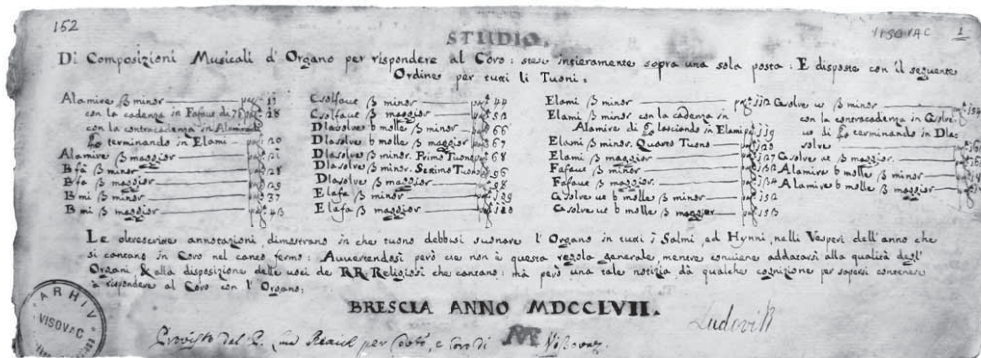 152
VISOVAC 1
STUDIO.
Di Composizioni Musicali d'Organo per rispondere al Coro: stese intieramente sopra una sola posta: E disposte con il seguente
Ordine per tutti li Tuoni.
Alamire β minor pag:
con la cadenza in Fafaut di
con la contracadenza in Alamire di
terminando in Elami pag: 20
Alamire β maggior pag: 21
B fa β minor pag: 28
B fa β maggior pag: 29
B mi β minor pag: 37
B mi β maggior pag: 43
Csolfaut β minor pag: 44
Csolfaut β maggior pag: 52
Dlasolre b molle β minor pag: 66
Dlasolre b molle β maggior pag: 67
Dlasolre β minor. Primo Tuono pag: 68
Dlasolre β minor. Settimo Tuono pag: 96
Dlasolre β maggior pag: 98
Elafa β minor pag: 109
Elafa β maggior pag: 110
Elami β minor pag: 112
Elami β minor con la cadenza in
Alamire di lasciando in Elami pag: 119
Elami β minor. Quarto Tuono pag: 120
Elami β maggior pag: 127
Fafaut β minor pag: 132
Fafaut β maggior pag: 134
Gsolreut b molle β minor pag: 152
Gsolreut b molle β maggior pag: 153
Gsolre ut β minor
con la contracadenza in Gsolre
ut di terminando in Dla
solre
Gsolre ut β maggior
Alamire b molle β minor
Alamire b molle β maggior
Le oltrescritte annotazioni, dimostrano in che tuono debbasi suonare l'Organo in tutti i Salmi, ed Hynni, nelli Vesperi dell'anno che
si cantano in Coro nel canto fermo: Avvertendosi però che non è questa regola generale, mentre conviene addatarsi alla qualità degl'
Organi, & alla disposizione delle voci de RR: Religiosi che cantano: mà però una tale notizia dà qualche cognizione per sapersi contenere
à rispondere al Coro con l'Organo;
BRESCIA ANNO MDCCLVII.
ARHIV
VISOVAC
Provisto del P. per Coro di